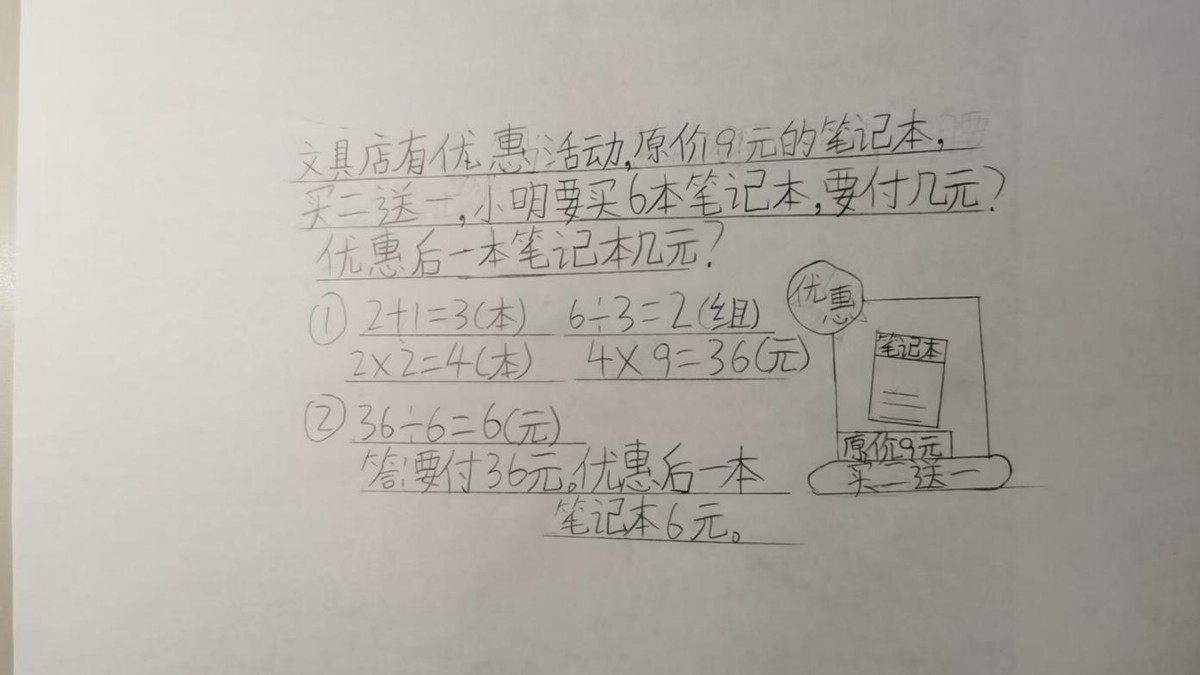 文具店有优惠活动,原价9元的笔记本,
买二送一,小明要买6本笔记本,要付几元?
优惠后一本笔记本几元?
① 2+1=3(本) 6÷3=2(组)
2×2=4(本) 4×9=36(元)
② 36÷6=6(元)
答:要付36元。优惠后一本
笔记本6元。
优惠
笔记本
原价9元
买二送一